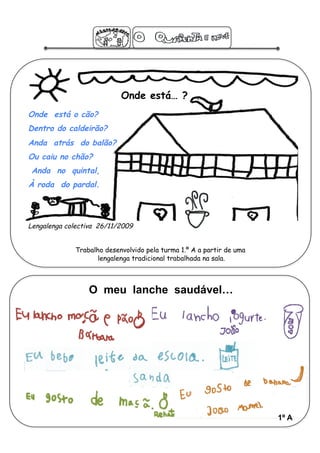 Onde está… ?
Onde está o cão?
Dentro do caldeirão?
Anda atrás do balão?
Ou caiu no chão?
Anda no quintal,
À roda do pardal.
Lengalenga colectiva 26/11/2009
Trabalho desenvolvido pela turma 1.º A a partir de uma
lengalenga tradicional trabalhada na sala.
O meu lanche saudável…
Eu lancho maçã e pão
Bárbara
Eu lancho iogurte.
João
Eu bebo leite da escola.
LEITE
Sanda
Eu gosto de maçã.
Renat
Eu gosto de banana
João Manuel
1º A